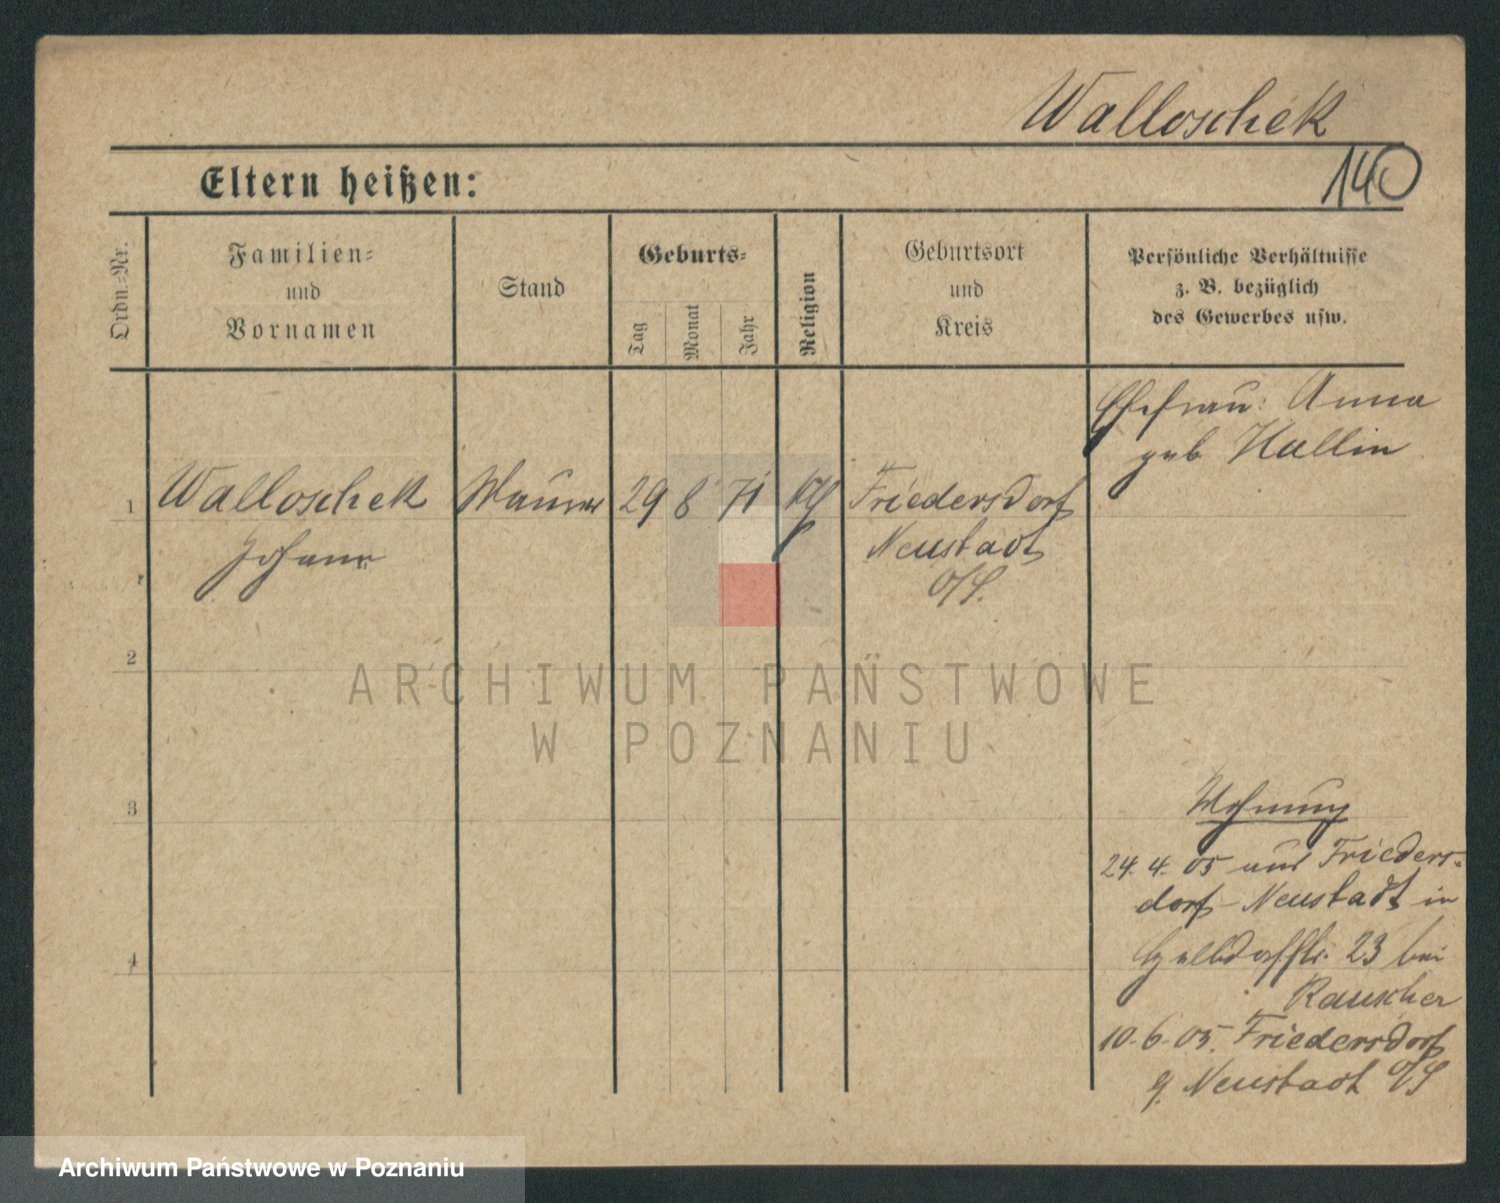 Walloschek
140
Eltern heißen:
Ordn.-Nr.
Familien-
und
Vornamen
Stand
Geburts-
Tag
Monat
Jahr
Religion
Geburtsort
und
Kreis
Persönliche Verhältnisse
z. B. bezüglich
des Gewerbes usw.
Ehefrau: Anna
geb Hallin
1
Walloschek
Johann
Maurer
29
8
71
Friedersdorf
Neustadt
O/S.
2
3
4
Wohnung
24. 4. 05 aus Frieders-
dorf-Neustadt in
23 bei
Rauscher
10.6.05. Friedersdorf
Neustadt O/S
ARCHIWUM PAŃSTWOWE
W POZNANIU
Archiwum Państwowe w Poznaniu